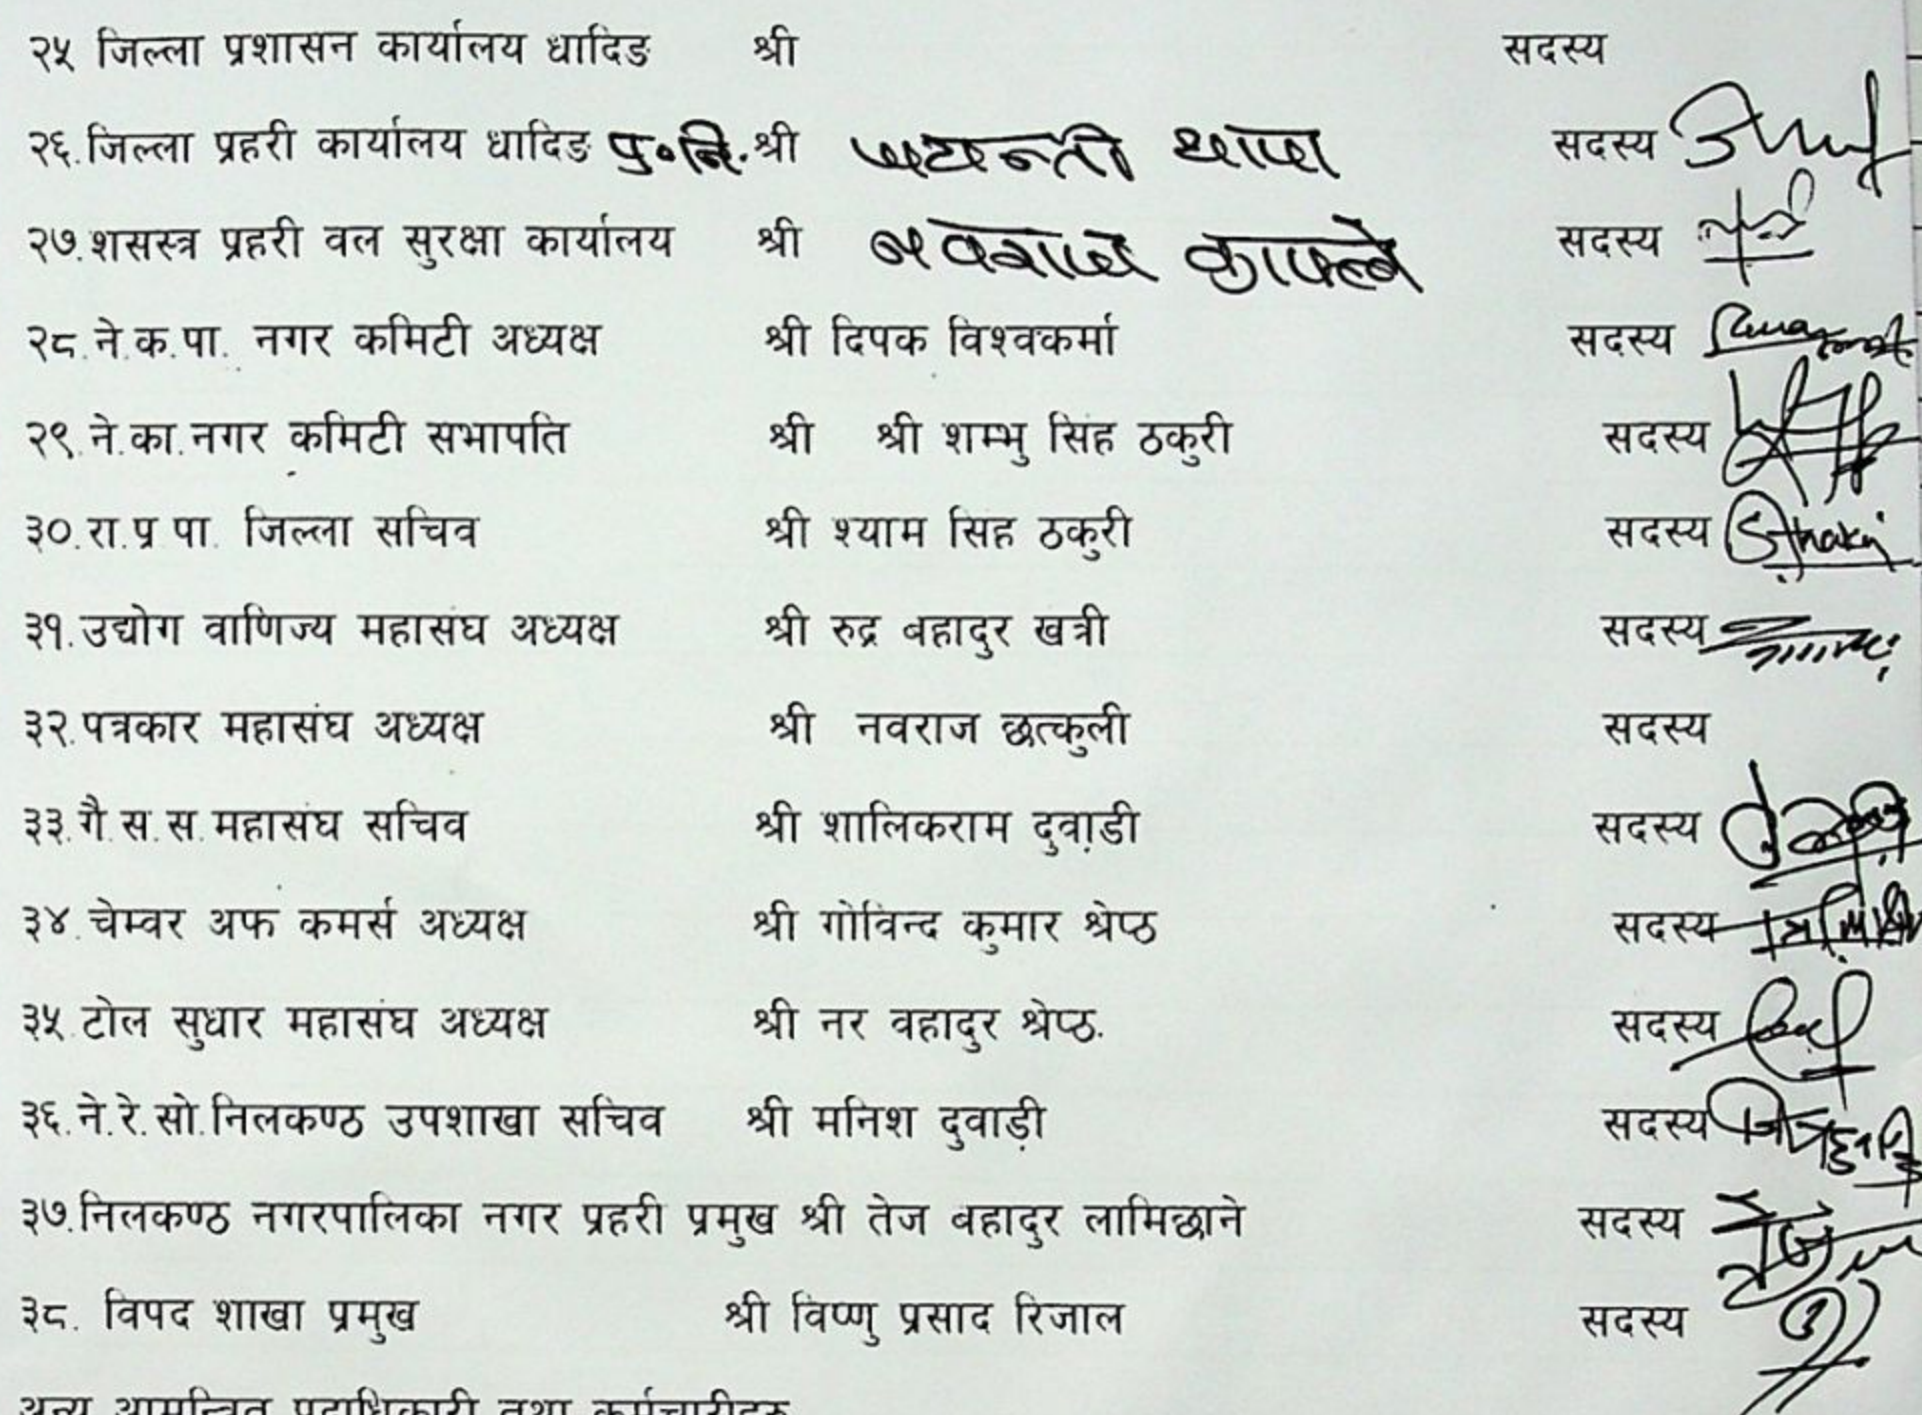 २५ जिल्ला प्रशासन कार्यालय धादिङ श्री सदस्य
२६.जिल्ला प्रहरी कार्यालय धादिङ प्र०नि. श्री जयन्ती थापा सदस्य
२७.शसस्त्र प्रहरी वल सुरक्षा कार्यालय श्री नवराज काफ्ले सदस्य
२८.ने.क.पा. नगर कमिटी अध्यक्ष श्री दिपक विश्वकर्मा सदस्य
२९.ने.का.नगर कमिटी सभापति श्री श्री शम्भु सिंह ठकुरी सदस्य
३०.रा.प्र.पा. जिल्ला सचिव श्री श्याम सिंह ठकुरी सदस्य
३१.उद्योग वाणिज्य महासंघ अध्यक्ष श्री रुद्र बहादुर खत्री सदस्य
३२.पत्रकार महासंघ अध्यक्ष श्री नवराज छत्कुली सदस्य
३३.गै.स.स.महासंघ सचिव श्री शालिकराम दुवाडी सदस्य
३४.चेम्वर अफ कमर्स अध्यक्ष श्री गोविन्द कुमार श्रेष्ठ सदस्य
३५.टोल सुधार महासंघ अध्यक्ष श्री नर वहादुर श्रेष्ठ. सदस्य
३६.ने.रे.सो.निलकण्ठ उपशाखा सचिव श्री मनिश दुवाड़ी सदस्य
३७.निलकण्ठ नगरपालिका नगर प्रहरी प्रमुख श्री तेज बहादुर लामिछाने सदस्य
३८. विपद शाखा प्रमुख श्री विष्णु प्रसाद रिजाल सदस्य
अन्य आमन्त्रित पदाधिकारी तथा कर्मचारीहरु